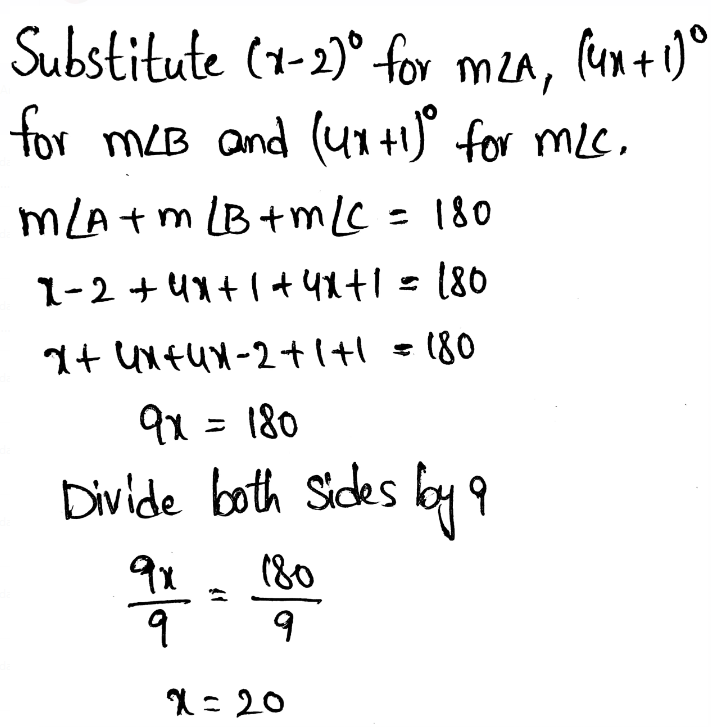 Substitute (x-2)° for m∠A, (4x+1)°
for m∠B and (4x+1)° for m∠C.
m∠A + m∠B + m∠C = 180
x-2 + 4x+1 + 4x+1 = 180
x + 4x + 4x - 2 + 1 + 1 = 180
9x = 180
Divide both sides by 9
9x/9 = 180/9
x = 20